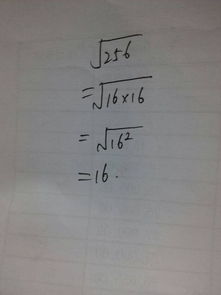 √256
=√16×16
=√16²
=16.